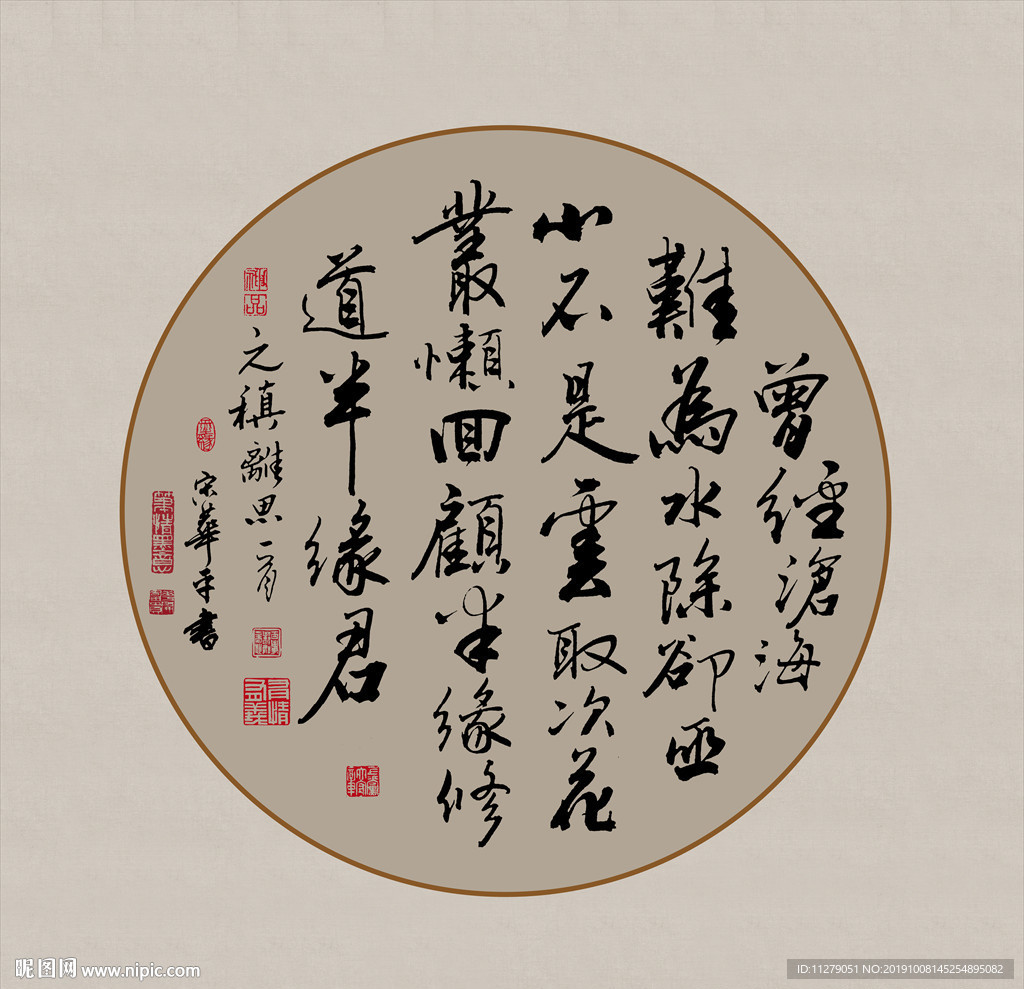 曾經滄海
難為水除卻巫
山不是雲取次花
叢懶回顧半緣修
道半緣君
元稹離思一首
宋華平書
昵图网 www.nipic.com
ID:11279051 NO:20191008145254895082